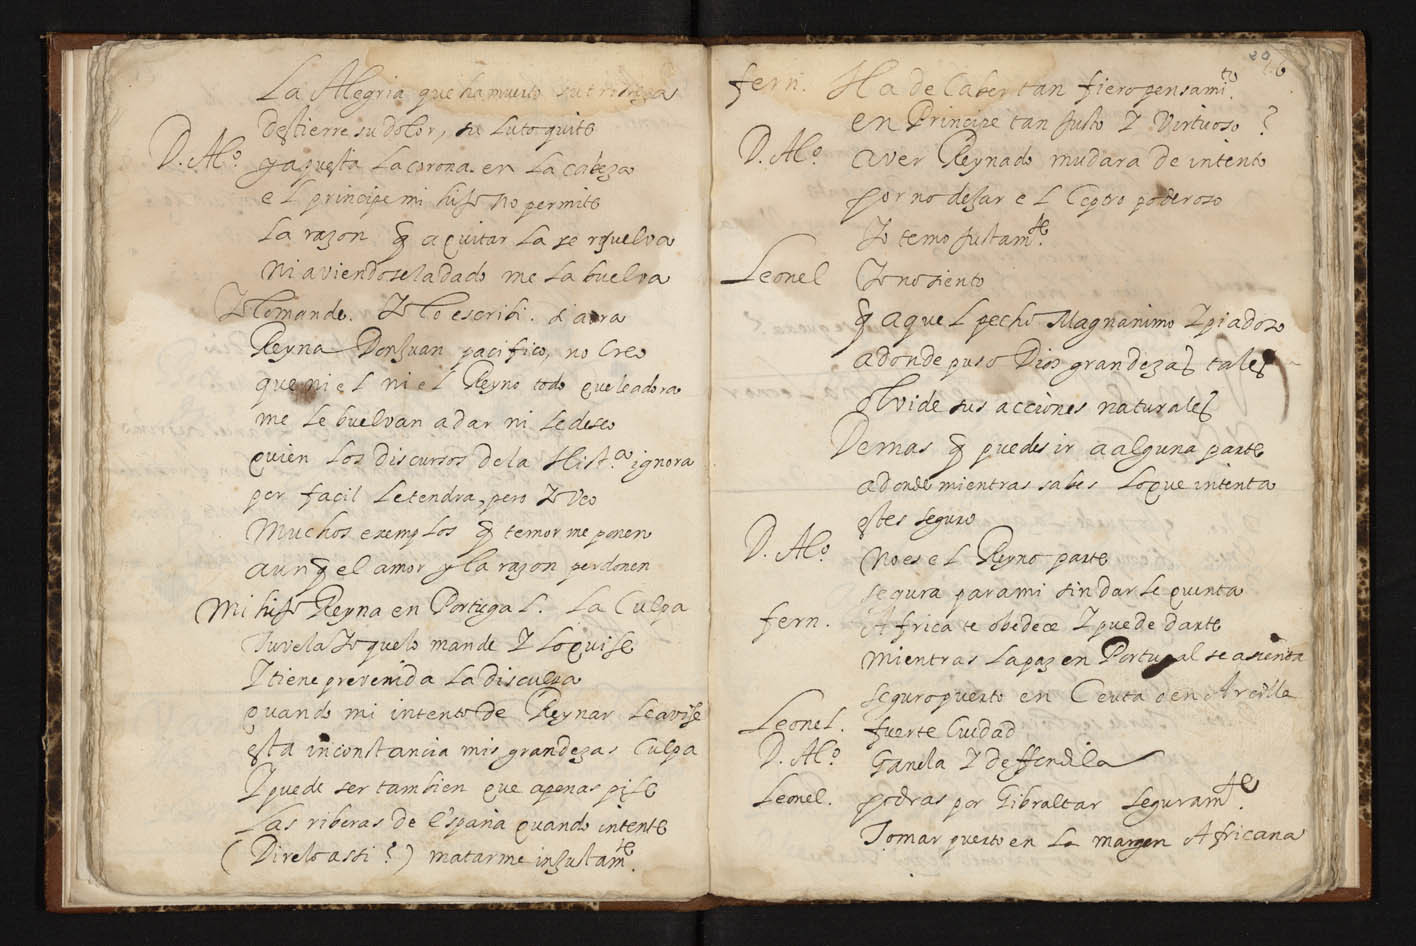 La Alegria que ha muerto su tristeza
destierre su dolor, su luto quite
D. Alo. ya puesta La corona en La cabeza
el principe mi hijo No permite
La razon q̃ a quitar La se resuelva
Ni aviendosela dado me La buelva
Yo lo mande. Yo lo escribi. i aora
Reyna Don Juan pacifico, no Creo
que ni el ni el Reyno todo que le adora
me Le buelvan a dar ni Le deseo
quien Los discursos de la Hist.a ignora
por facil Le tendra, pero Yo Veo
Muchos exemplos q̃ temor me ponen
aunq̃ el amor y la razon perdonen
Mi hijo Reyna en Portugal. La Culpa
Tuvela Yo que lo mande Y Lo quise
Y tiene prevenida La disculpa
quando mi intento de Reynar Le avise
esta inconstancia mis grandezas Culpa
Y puede ser tambien que apenas pise
Las riberas de España quando intente
(Direlo assi?) matarme injustam.te
20
fern. Ha de Caber tan fiero pensami.to
en Principe tan Justo Y Virtuoso?
D. Alo. a ver Reynado mudara de intento
por no dejar el Ceptro poderoso
Yo temo justam.te
Leonel Yo no siento
q̃ aquel pecho Magnanimo Y piadoso
adonde puso Dios grandezas tales
olvide sus acciones naturales
Demas q̃ puedes ir a alguna parte
adonde mientras sabes Lo que intenta
estes seguro
D. Alo. No es el Reyno parte
segura para mi sin darle quenta
fern. Africa te obedece Y puede darte
Mientras La paz en Portugal se asienta
seguro puerto en Ceuta o en Arcilla
Leonel. fuerte Cuidad
D. Alo. Ganela Y deffendila
Leonel. podras por Gibraltar seguram.te
Tomar puerto en La margen Africana